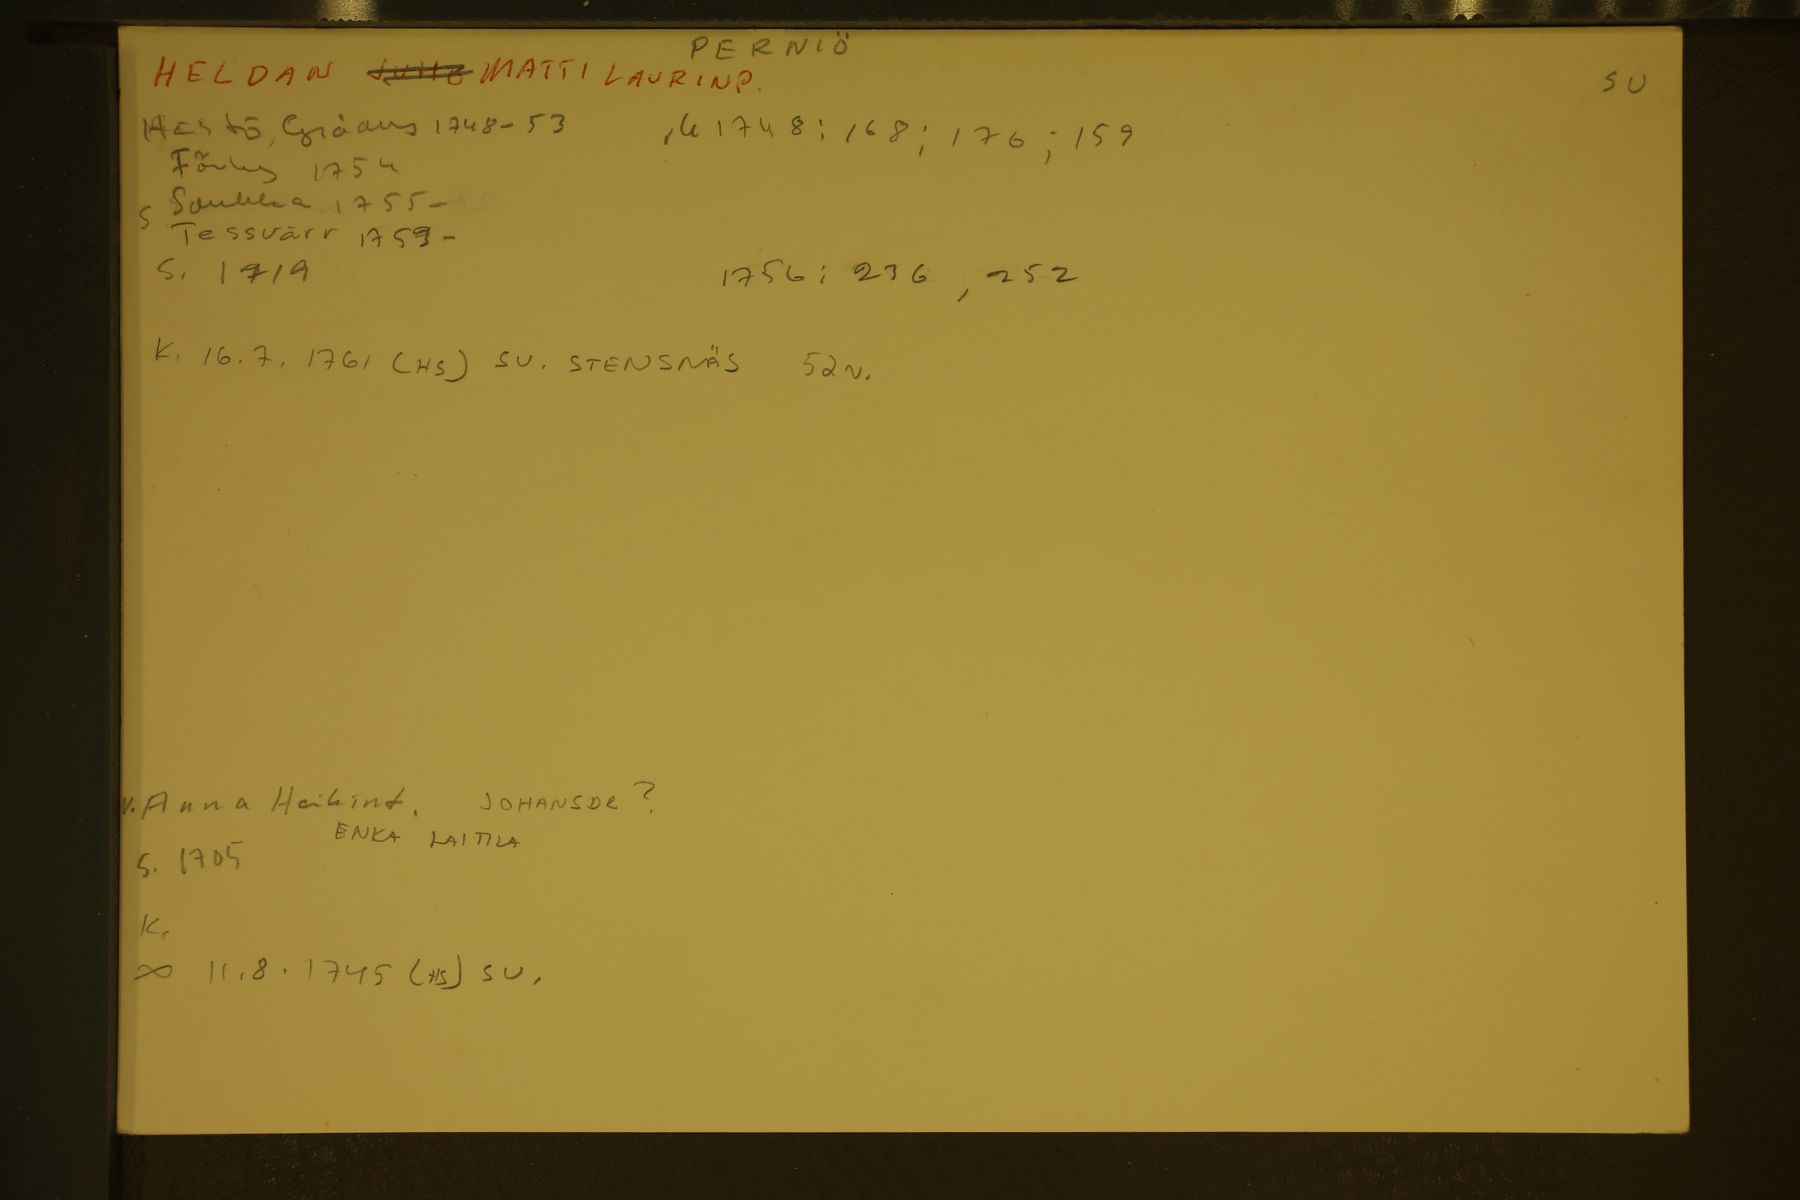 PERNIÖ
HELDAN MATTI LAURINP. SU
Hästö, Grådus 1748-53 1748: 168; 176; 159
1754
S Saukka 1755-
Tessvärr 1759-
S. 1719 1756: 236, 252
K. 16.7.1761 (HS) SU. STENSNÄS 52v.
v. Anna Heikint. JOHANSDR?
ENKA LAITILA
S. 1705
K.
∞ 11.8.1745 (HS) SU.